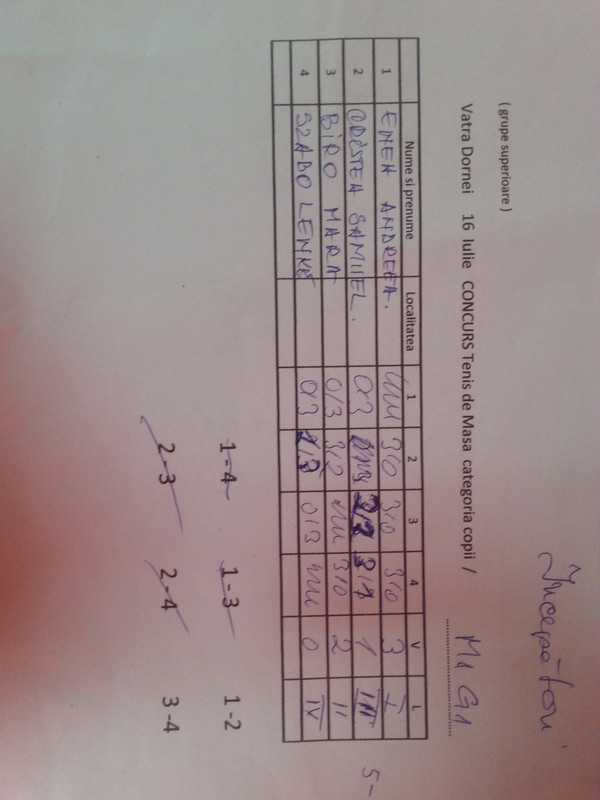 Începători
( grupe superioare )
Vatra Dornei 16 Iulie CONCURS Tenis de Masa categoria copii / M1 G1
Nume si prenume Localitatea 1 2 3 4 V L
1 ENEA ANDREEA. 3/0 3/0 3/0 3 I
2 CRISTEA SAMUEL. 0/3 1 III
3 BIRO MARA 0/3 3/2 3/0 2 II
4 SZABO LENKE 0/3 0/3 0 IV
5-
1-4 1-3 1-2
2-3 2-4 3-4